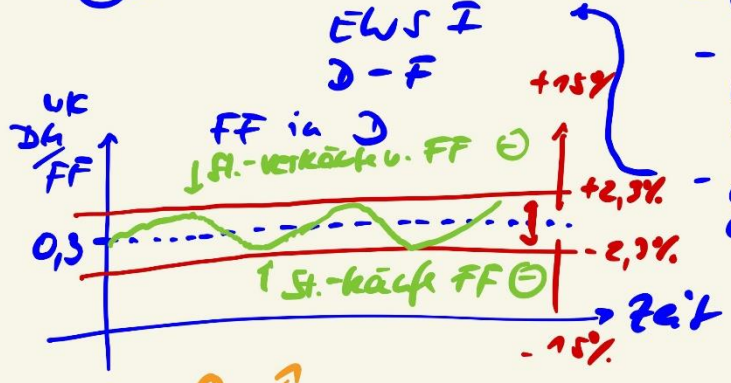 EWS I
D-F
+15%
WK
DM/FF
FF in D
↓ St.-verkäufe v. FF ⊖
+2,3%
0,3
-2,3%
↑ St.-käufe FF ⊖
Zeit
-15%